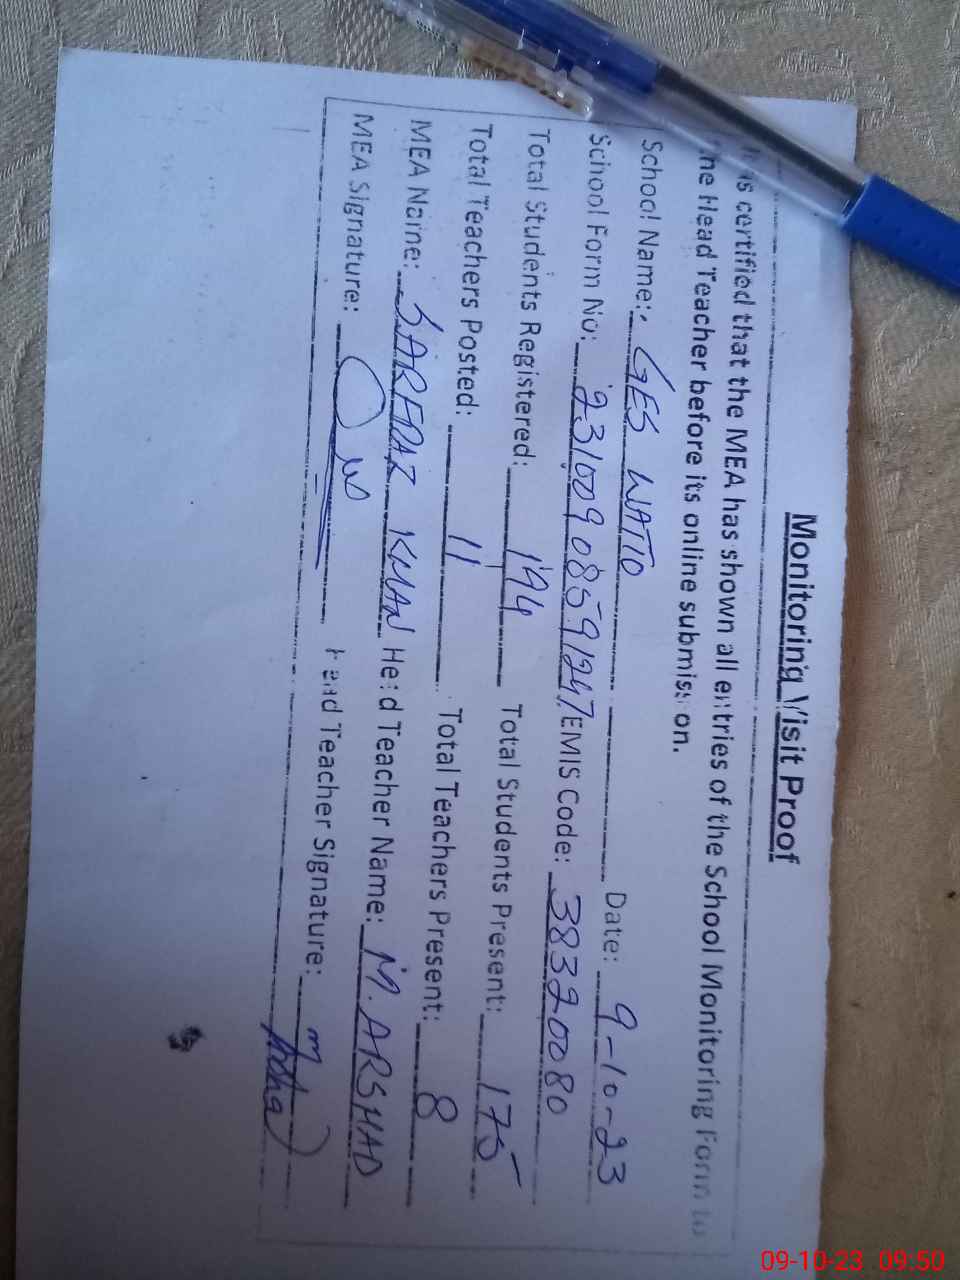 Monitoring Visit Proof
is certified that the MEA has shown all entries of the School Monitoring Form to
the Head Teacher before its online submission.
School Name: GES WATTO Date: 9-10-23
School Form No: 23100908591247 EMIS Code: 38320080
Total Students Registered: 194 Total Students Present: 175
Total Teachers Posted: 11 Total Teachers Present: 8
MEA Name: SARFRAZ KHAN Head Teacher Name: M. ARSHAD
MEA Signature: Head Teacher Signature:
09-10-23 09:50